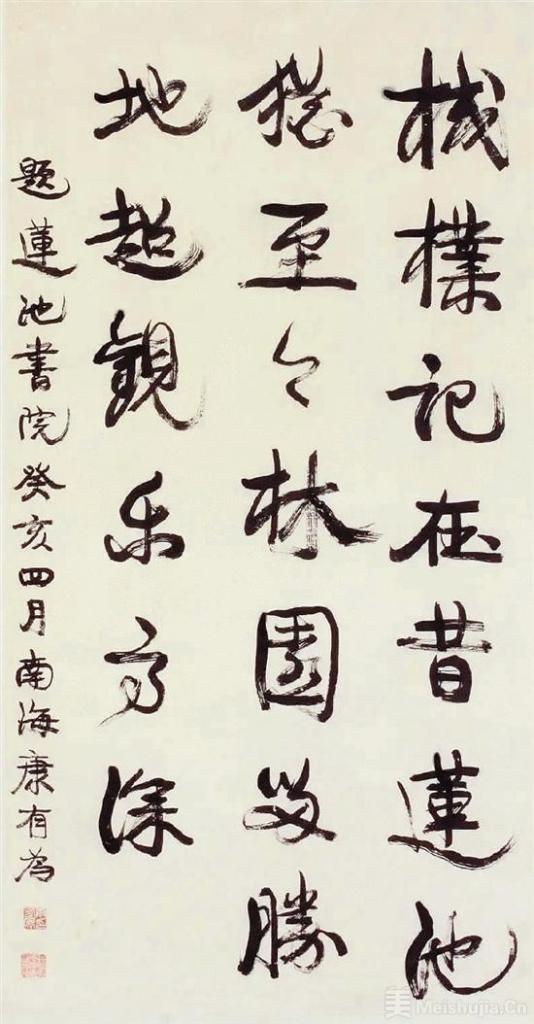 棫樸記在昔蓮池
猶至今林園留勝
地超觀樂方深
題蓮池書院癸亥四月南海康有為
美 Meishujia.Cn